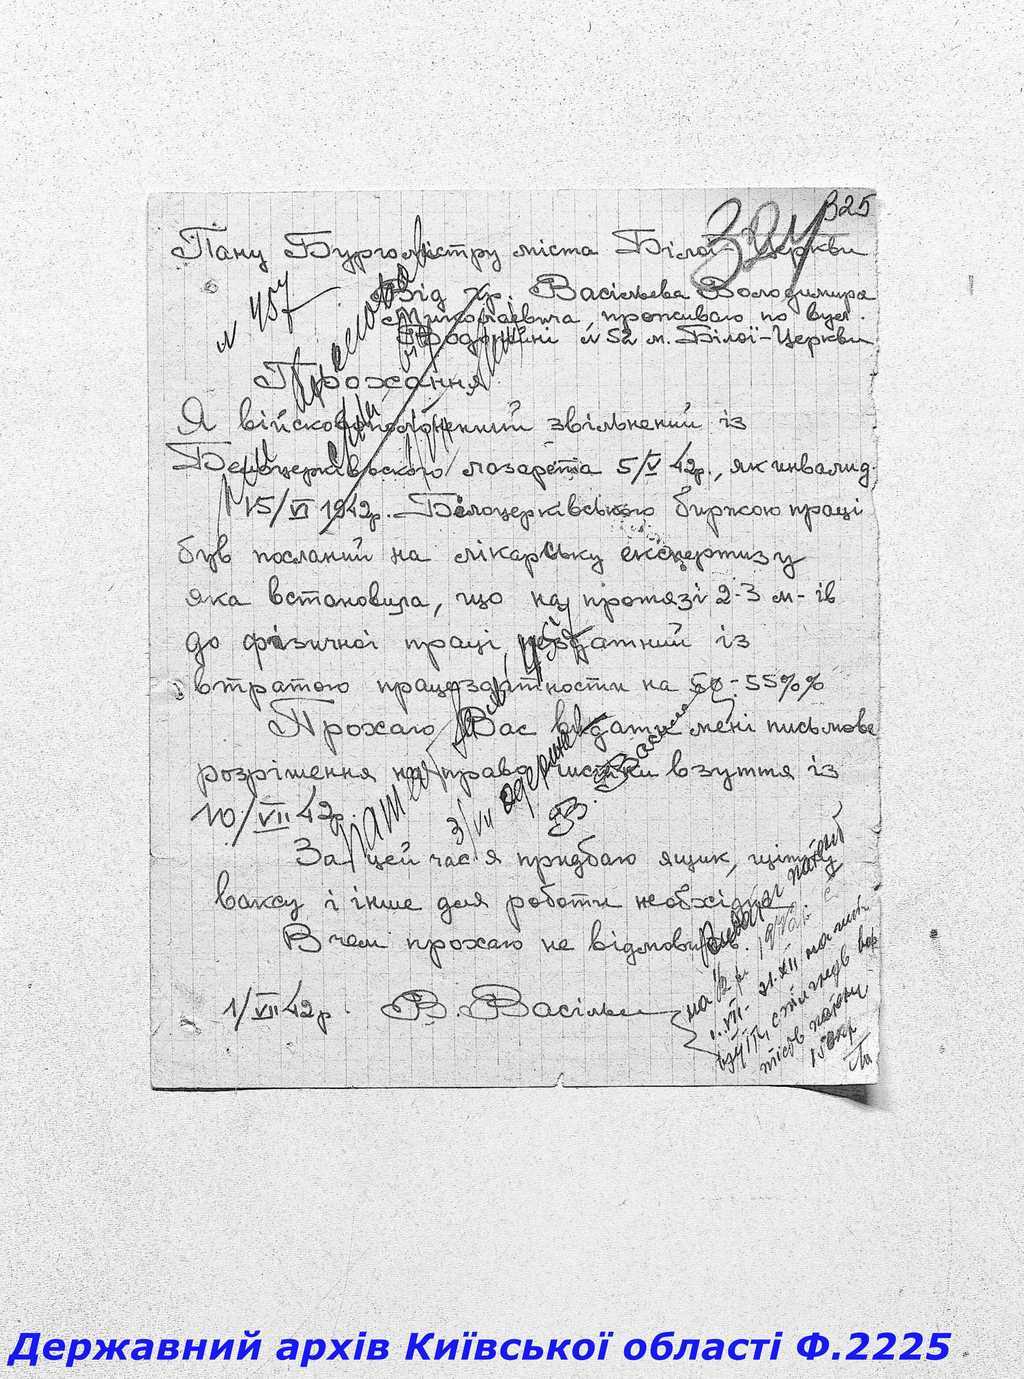 325
324
Пану Бургомістру міста Білої-Церкви
Від гр. Васільєва Володимира
Миколаєвича проживаю по вул.
№ 52 м. Білої-Церкви
№ 457
Прохання
Я військовополонений звільнений із
Белоцерківського лазарета 5/V 42р., як инвалид.
15/VI 1942р. Білоцерківською биржою праці
був посланий на лікарську експертизу
яка встановила, що на протязі 2-3 м-ів
до фізичної праці, нездатний із
втратою працездатности на 50-55%%
Прохаю Вас видати мені письмове
розрішення на право чистки взуття із
10/VII 42р.
За цей час я придбаю ящик, щітку
ваксу і інше для роботи необхідне.
В чем прохаю не відмовити.
1/VII 42р. В. Васільєв
Патент
3/VII одержав
В. Васильев
Видати патент
на 1/2 р. 1942р. с
1.VII - 31.XII на чист